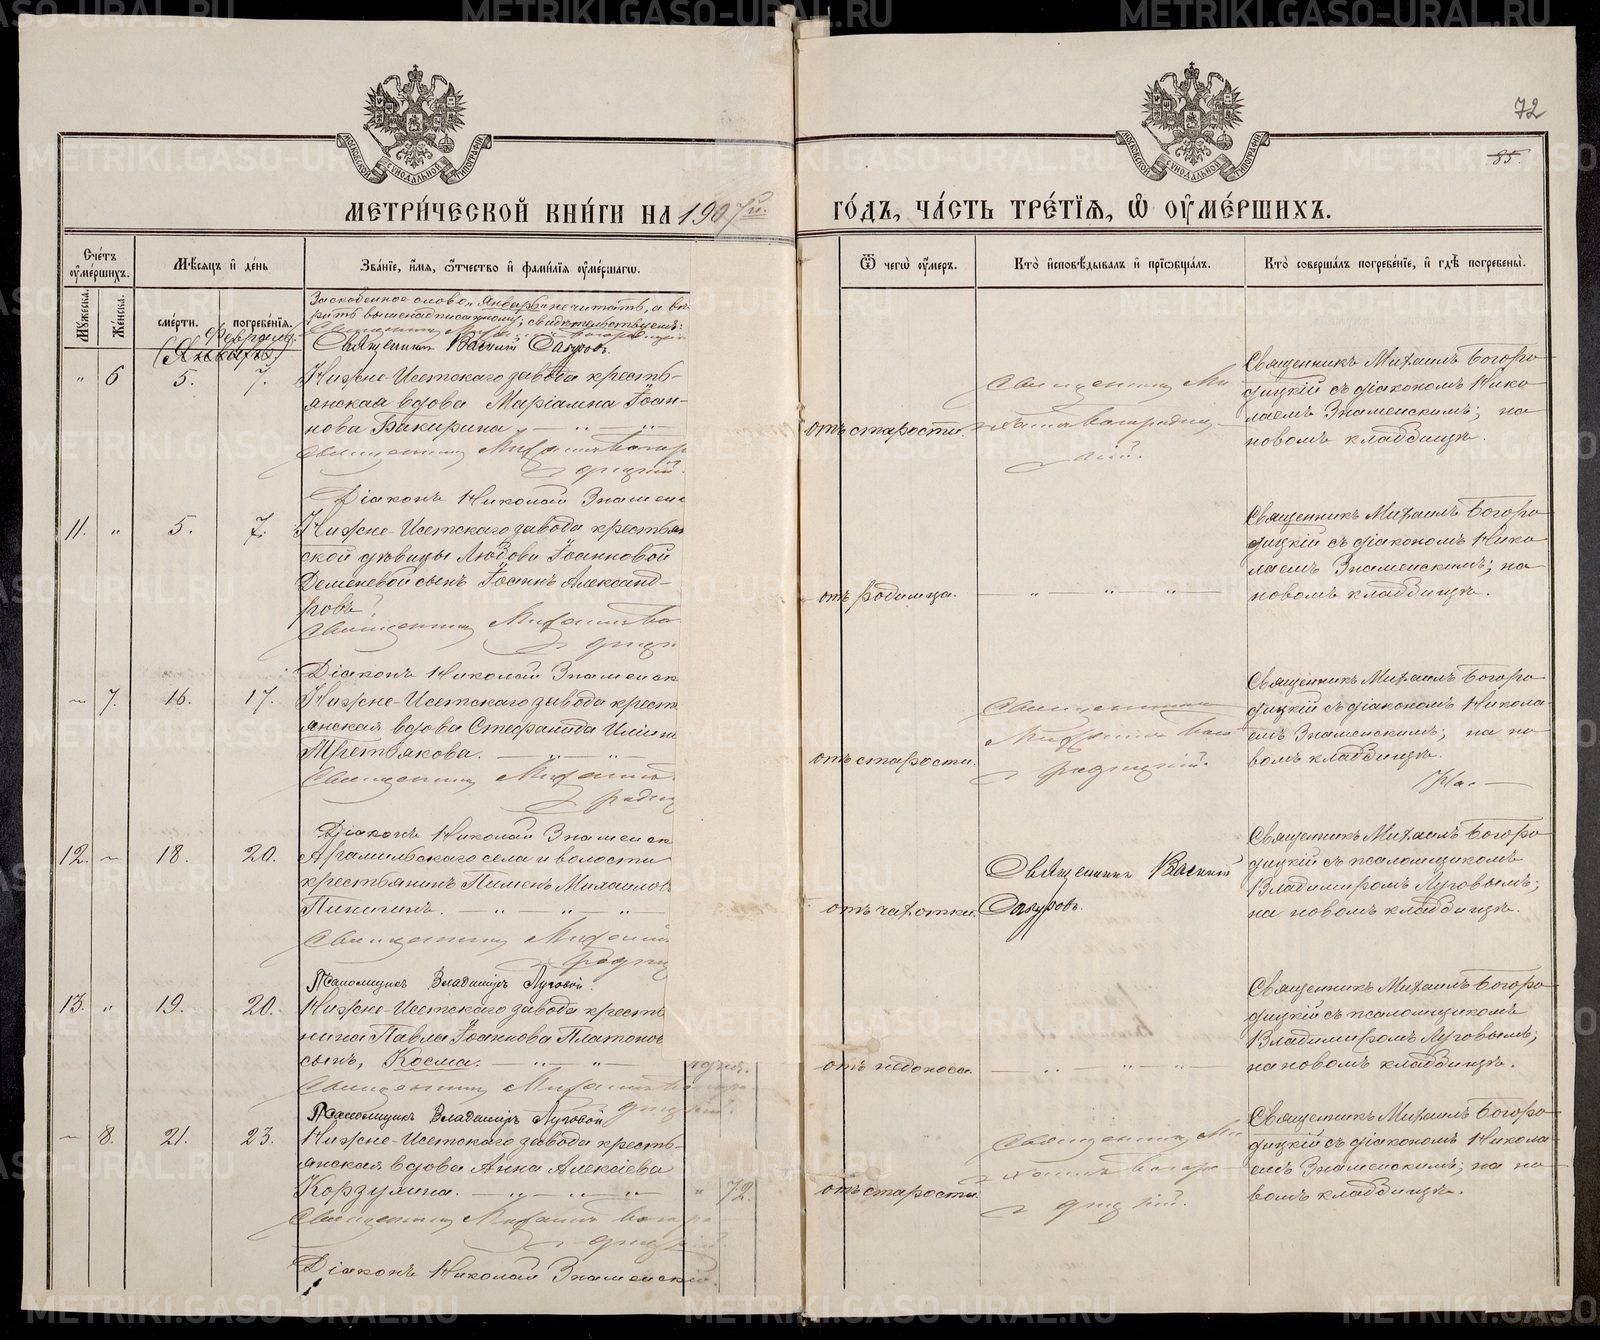 METRIKI.GASO-URAL.RU
72
85.
МОСКОВСКОЙ СѴНОДАЛЬНОЙ ТИПОГРАФІИ
МЕТРИ́ЧЕСКОЙ КНИ́ГИ НА 1907й.
ГО́ДЪ, ЧА́СТЬ ТРЕ́ТІѦ, Ѡ҆ ОУ҆МЕ́РШИХЪ.
Сче́тъ оу҆ме́ршихъ.
Мѣ́сяцъ и҆ де́нь
Зва́нїе, и҆́мя, ѻ҆́тчество и҆ фами́лїя оу҆ме́ршагѡ.
Ѿ чегѡ̀ оу҆́меръ.
Кто̀ и҆сповѣ́дывалъ и҆ прїѡбща́лъ.
Кто̀ соверша́лъ погребе́нїе, и҆ гдѣ̀ погребены̀.
Мꙋ́жеска.
Же́нска.
сме́рти.
погребе́нїя.
Февраль.
(Январь)
Заскобенное слово „Январь" не читать, а
рить вышенадписанному, свидетельствуемъ:
Священникъ Василій
„ 6 5. 7.
Нижне-Исетскаго завода кресть-
янская вдова Маріамна Іоан-
нова Бакирина — „ — „ —
Священникъ Михаилъ Богор
одицкій.
Діаконъ Николай Знаменс
отъ старости.
Священникъ Ми
хаилъ Богородиц
кій.
Священникъ Михаилъ Богоро-
дицкій съ діакономъ Нико-
лаемъ Знаменскимъ; на
новомъ кладбищѣ.
11. „ 5. 7.
Нижне-Исетскаго завода крестьян
ской дѣвицы Любови Іоанновой
Деменевой сынъ Іоаннъ Александ-
ровъ.
Священникъ Михаилъ Бо
дицк
Діаконъ Николай Знаменск
отъ родимца.
— „ — „ — „ —
Священникъ Михаилъ Богоро-
дицкій съ діакономъ Нико-
лаемъ Знаменскимъ; на
новомъ кладбищѣ.
— 7. 16. 17.
Нижне-Исетскаго завода крест
янская вдова Стефанида Иліин
Третьякова. — „ — „ —
Священникъ Михаилъ
родиц
Діаконъ Николай Знаменск
отъ старости.
Священникъ
Михаилъ Бого
родицкій.
Священникъ Михаилъ Богоро-
дицкій съ діакономъ Никола-
емъ Знаменскимъ; на но-
вомъ кладбищѣ.
12. — 18. 20.
Арамильскаго села и волости
крестьянинъ Пименъ Михаилов
Пинигинъ. — „ — „ — „ —
Священникъ Михаилъ
родиц
Псаломщикъ Владиміръ Луговой.
отъ чахотки.
Священникъ Василій
Священникъ Михаилъ Богоро-
дицкій съ псаломщикомъ
Владимиромъ Луговымъ;
на новомъ кладбищѣ.
13. „ 19. 20.
Нижне-Исетскаго завода кресть
нина Павла Іоаннова Платонов
сынъ, Косма. — „ — „ —
Священникъ Михаилъ Богоро
дицкій.
Псаломщикъ Владиміръ Луговой
отъ недоноса.
— „ — „ — „ —
Священникъ Михаилъ Богоро-
дицкій съ псаломщикомъ
Владимиромъ Луговымъ;
на новомъ кладбищѣ.
— 8. 21. 23.
Нижне-Исетскаго завода кресть-
янская вдова Анна Алексіева
Корзухина. — „ — „ — „ —
„ 72.
Священникъ Михаилъ Богоро
дицкій.
Діаконъ Николай Знаменскій.
отъ старости.
Священникъ Ми
хаилъ Богоро
дицкій.
Священникъ Михаилъ Богоро-
дицкій съ діакономъ Никола-
емъ Знаменскимъ; на но-
вомъ кладбищѣ.